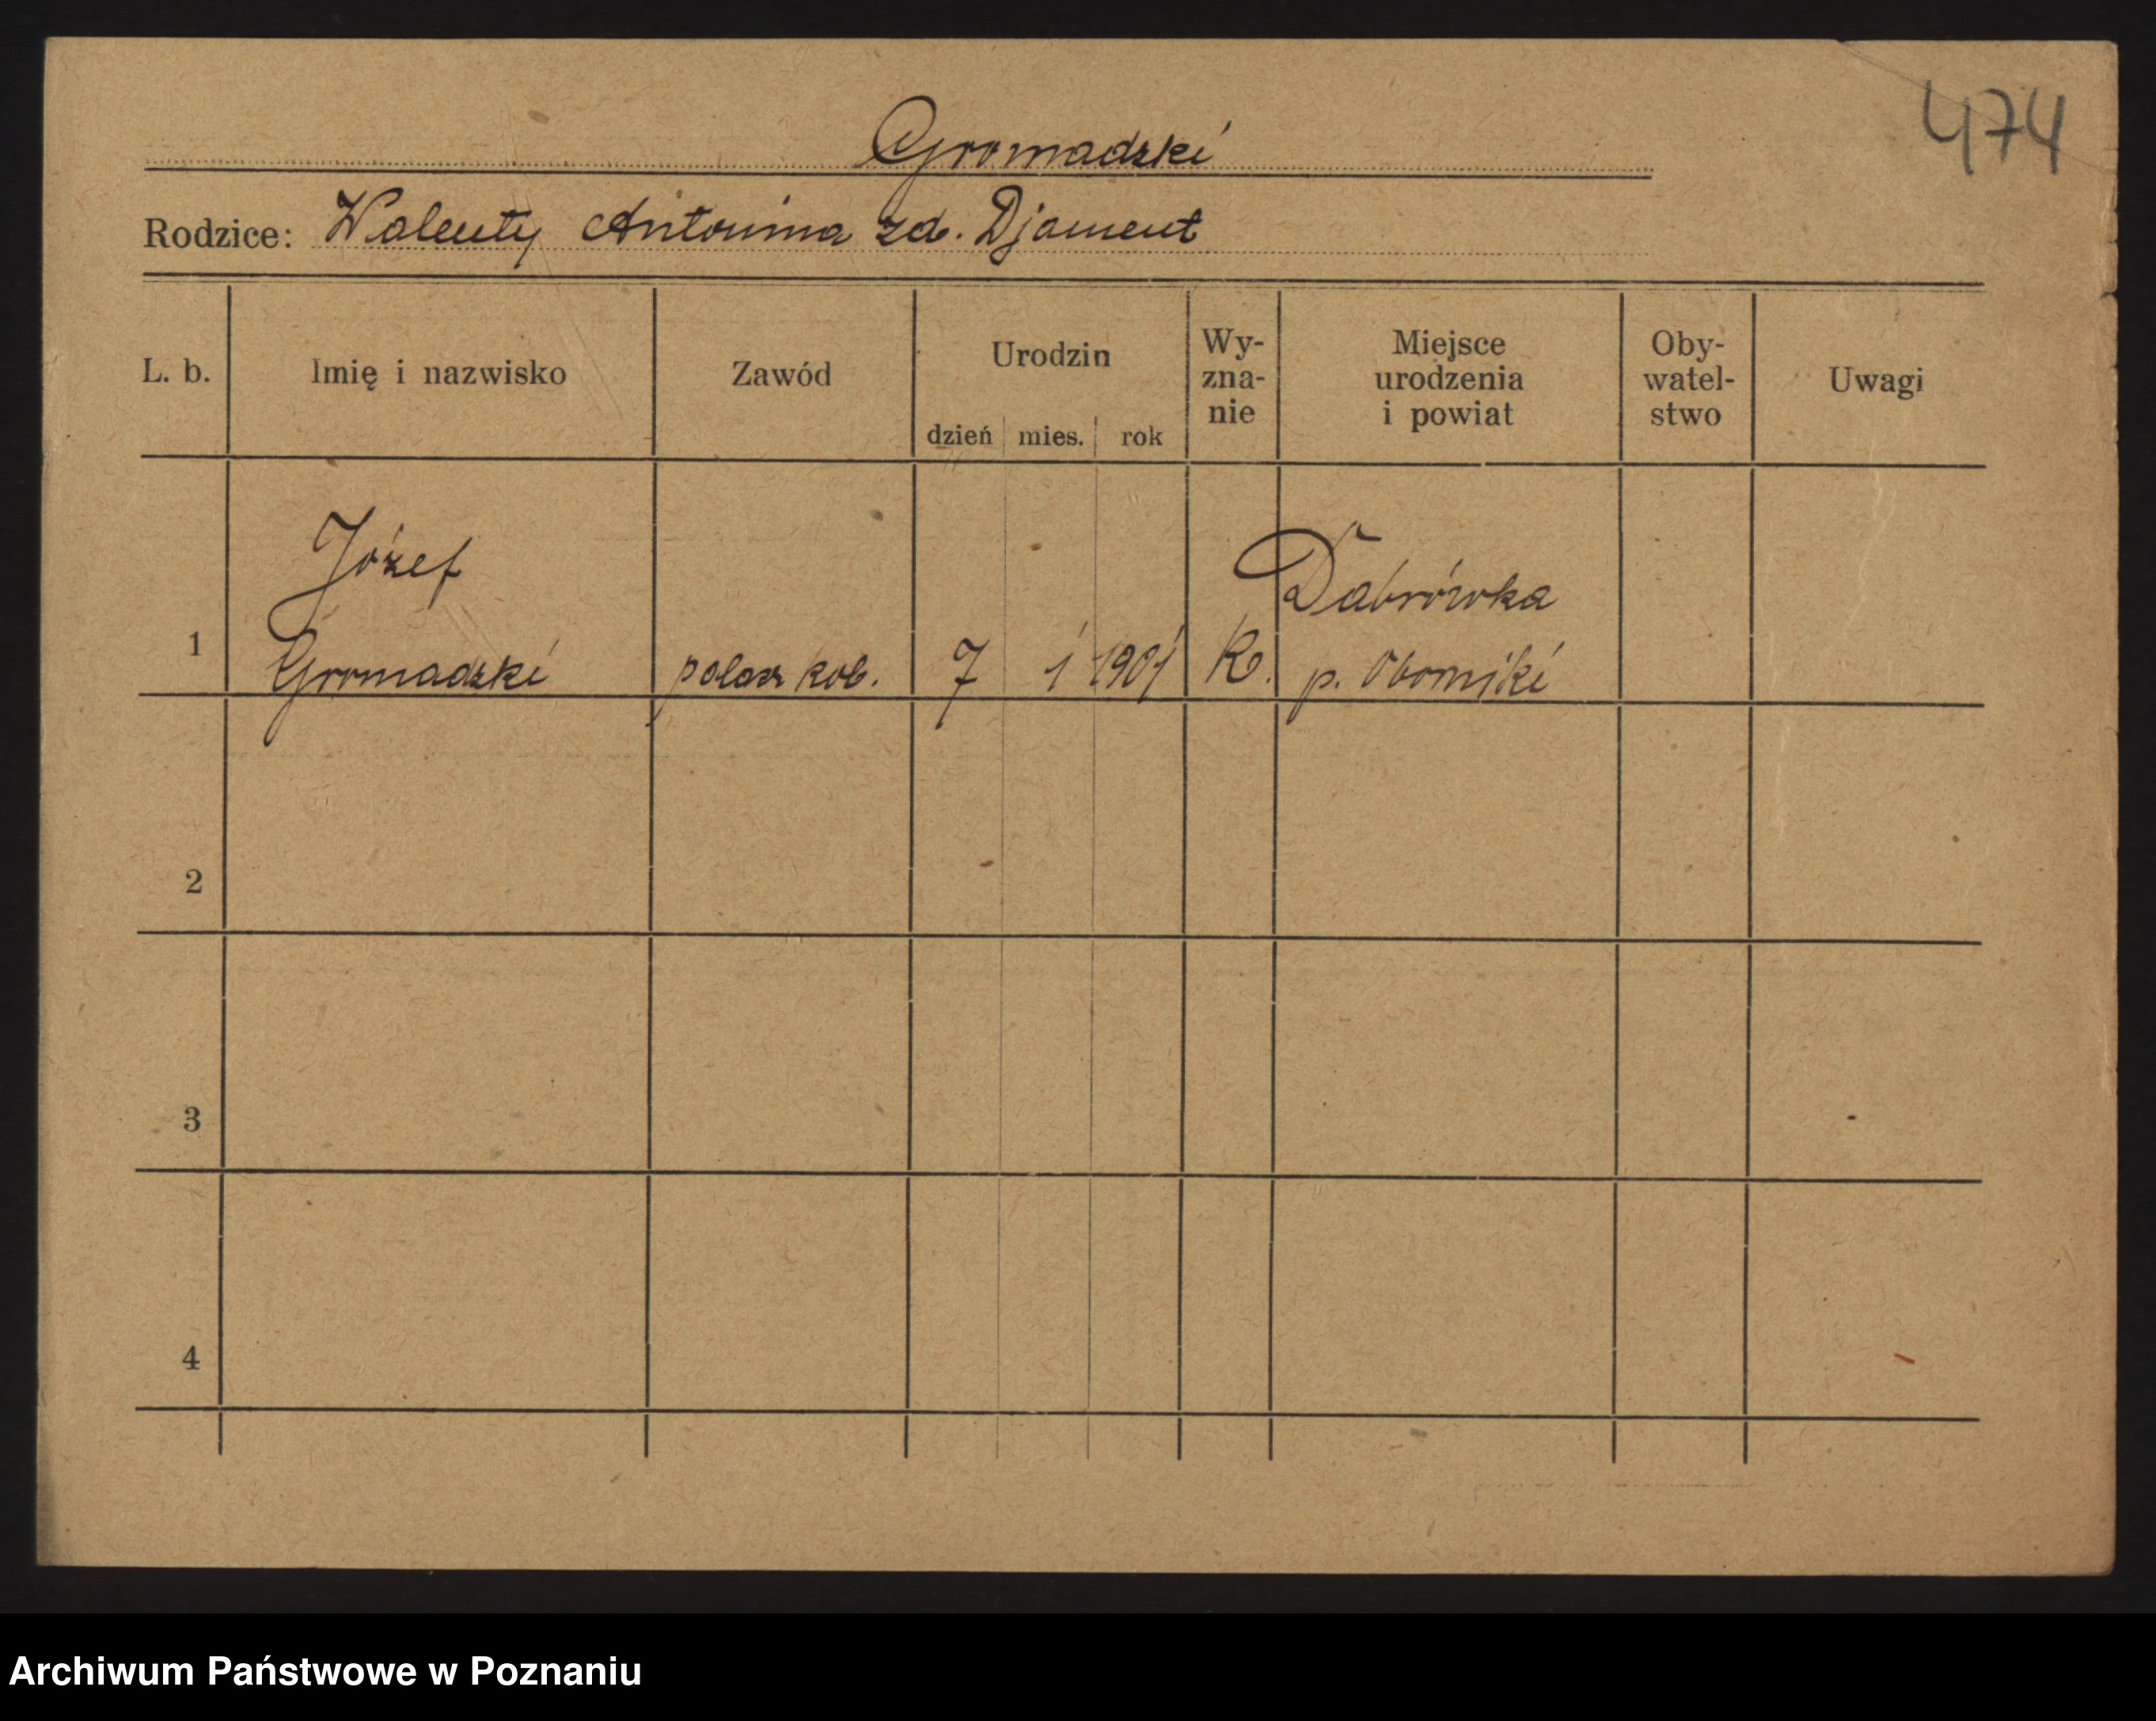 474
Gromadzki
Rodzice: Walenty Antonina zd. Djament
L. b. Imię i nazwisko Zawód Urodzin dzień mies. rok Wy-zna-nie Miejsce urodzenia i powiat Oby-watel-stwo Uwagi
Józef Dabrówka
1 Gromadzki kob. 7 1 1901 K. p. Oborniki
2
3
4
Archiwum Państwowe w Poznaniu